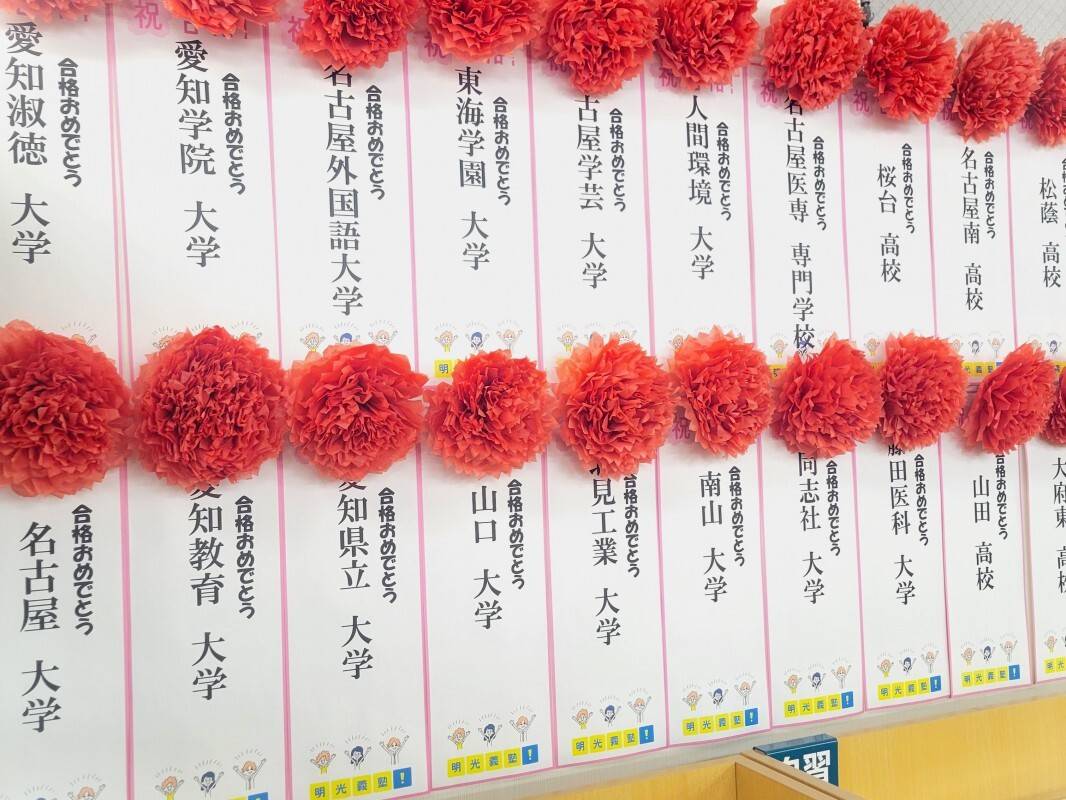 愛知淑徳 大学
合格おめでとう
愛知学院 大学
合格おめでとう
祝
名古屋外国語大学
合格おめでとう
祝
東海学園 大学
合格おめでとう
明
祝
古屋学芸 大学
合格おめでとう
祝
人間環境 大学
合格おめでとう
祝
名古屋医専 専門学校
合格おめでとう
祝
桜台 高校
合格おめでとう
名古屋南 高校
合格おめでとう
祝
松蔭 高校
名古屋 大学
合格おめでとう
愛知教育 大学
合格おめでとう
愛知県立 大学
合格おめでとう
明光義塾!
山口 大学
合格おめでとう
明光義塾!
見工業 大学
合格おめでとう
明光義塾!
祝
南山 大学
合格おめでとう
明光義塾!
同志社 大学
合格おめでとう
明光義塾!
藤田医科 大学
合格おめでとう
明光義塾!
山田 高校
合格おめでとう
明光義塾!
大府東 高校
明光
習